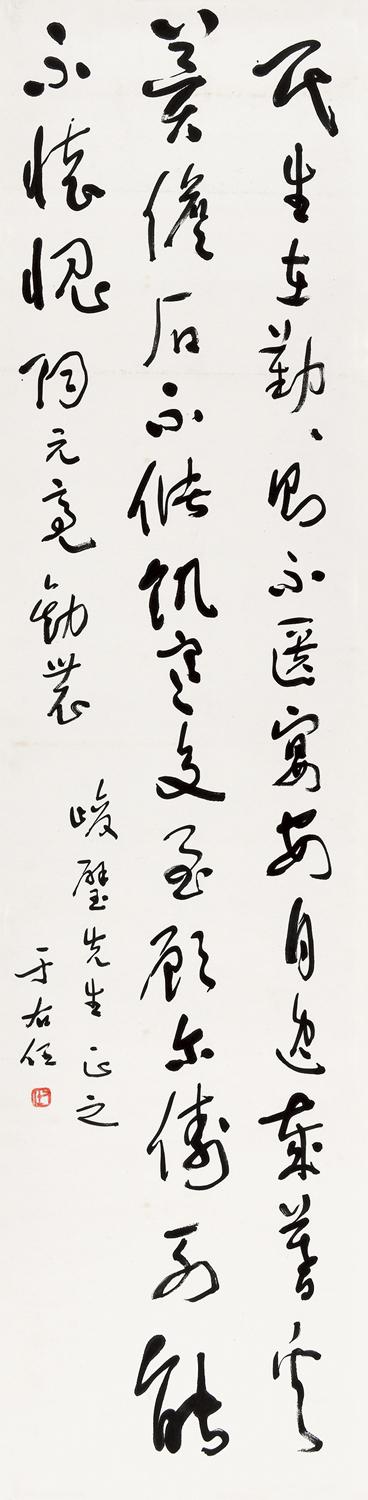 民生在勤〻則不匱宴安自逸歲暮奚
冀儋石不儲飢寒交至顧尔儔列能
不懷愧 陶元亮勸農
峻璧先生正之
于右任